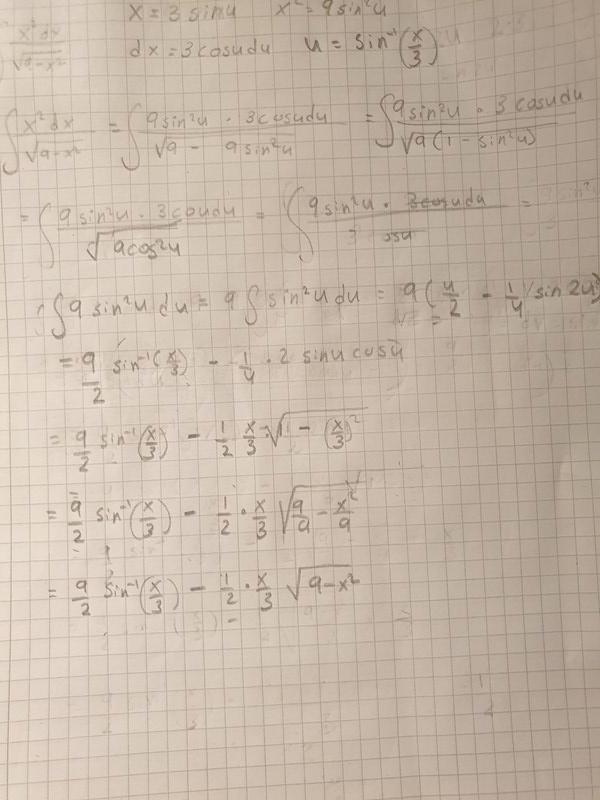 x = 3 sinu x² = 9 sin²u
x² dx / √(9-x²) dx = 3cosudu u = sin⁻¹(x/3)
∫ x² dx / √(9-x²) = ∫ 9sin²u · 3cosudu / √(9 - 9sin²u) = ∫ 9sin²u · 3cosudu / √(9(1 - sin²u))
= ∫ 9sin²u · 3coudu / √(9cos²u) = ∫ 9sin²u · 3cosudu / 3 osu =
∫ 9 sin²u du = 9 ∫ sin²u du = 9 (u/2 - 1/4 sin 2u)
= 9/2 sin⁻¹(x/3) - 1/4 · 2 sinu cosu
= 9/2 sin⁻¹(x/3) - 1/2 x/3 · √(1 - (x/3)²)
= 9/2 sin⁻¹(x/3) - 1/2 · x/3 √(9/9 - x²/9)
= 9/2 sin⁻¹(x/3) - 1/2 · x/3 √(9-x²)